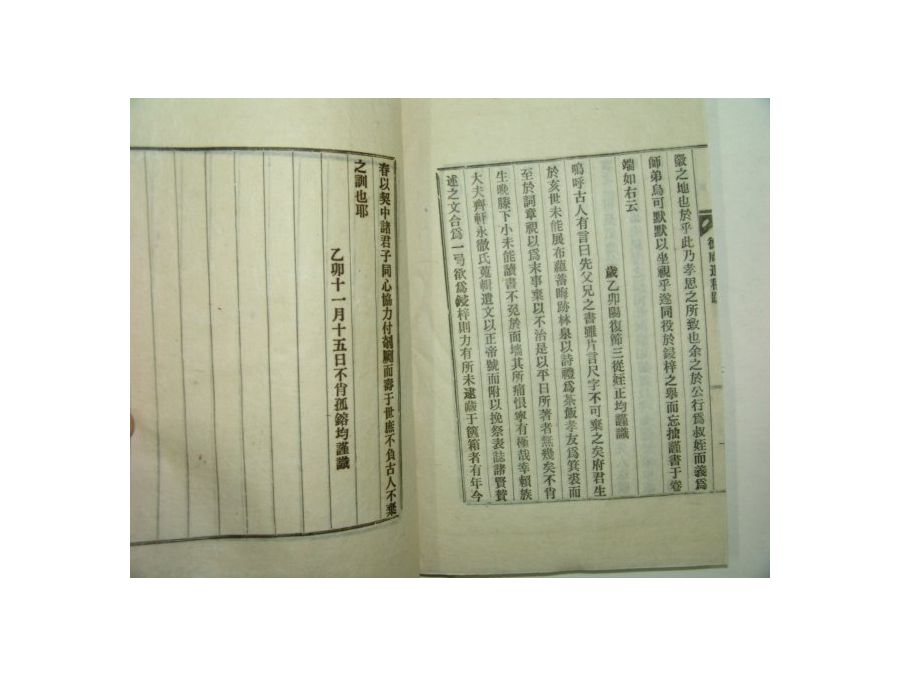 徽之地也於乎此乃孝思之所致也余之於公行爲叔姪而義爲
師弟烏可默默以坐視乎遂同役於鋟梓之擧而忘拙謹書于卷
端如右云
歲乙卯陽復節三從姪正均謹識
嗚呼古人有言曰先父兄之書雖片言尺字不可棄之矣府君生
於亥世未能展布蘊蓄晦跡林泉以詩禮爲茶飯孝友爲箕裘而
至於詞章視以爲末事棄以不治是以平日所著者無幾矣不肖
生晩膝下小未能讀書不免於面墻其所痛恨寧有極哉幸賴族
大夫齊軒永徹氏蒐輯遺文以正帝號而附以挽祭表誌諸賢贊
述之文合爲一弓欲爲鋟梓則力有所未逮齎于篋箱者有年今
春以契中諸君子同心協力付剞劂而壽于世庶不負古人不棄
之訓也耶
乙卯十一月十五日不肖孤鎔均謹識